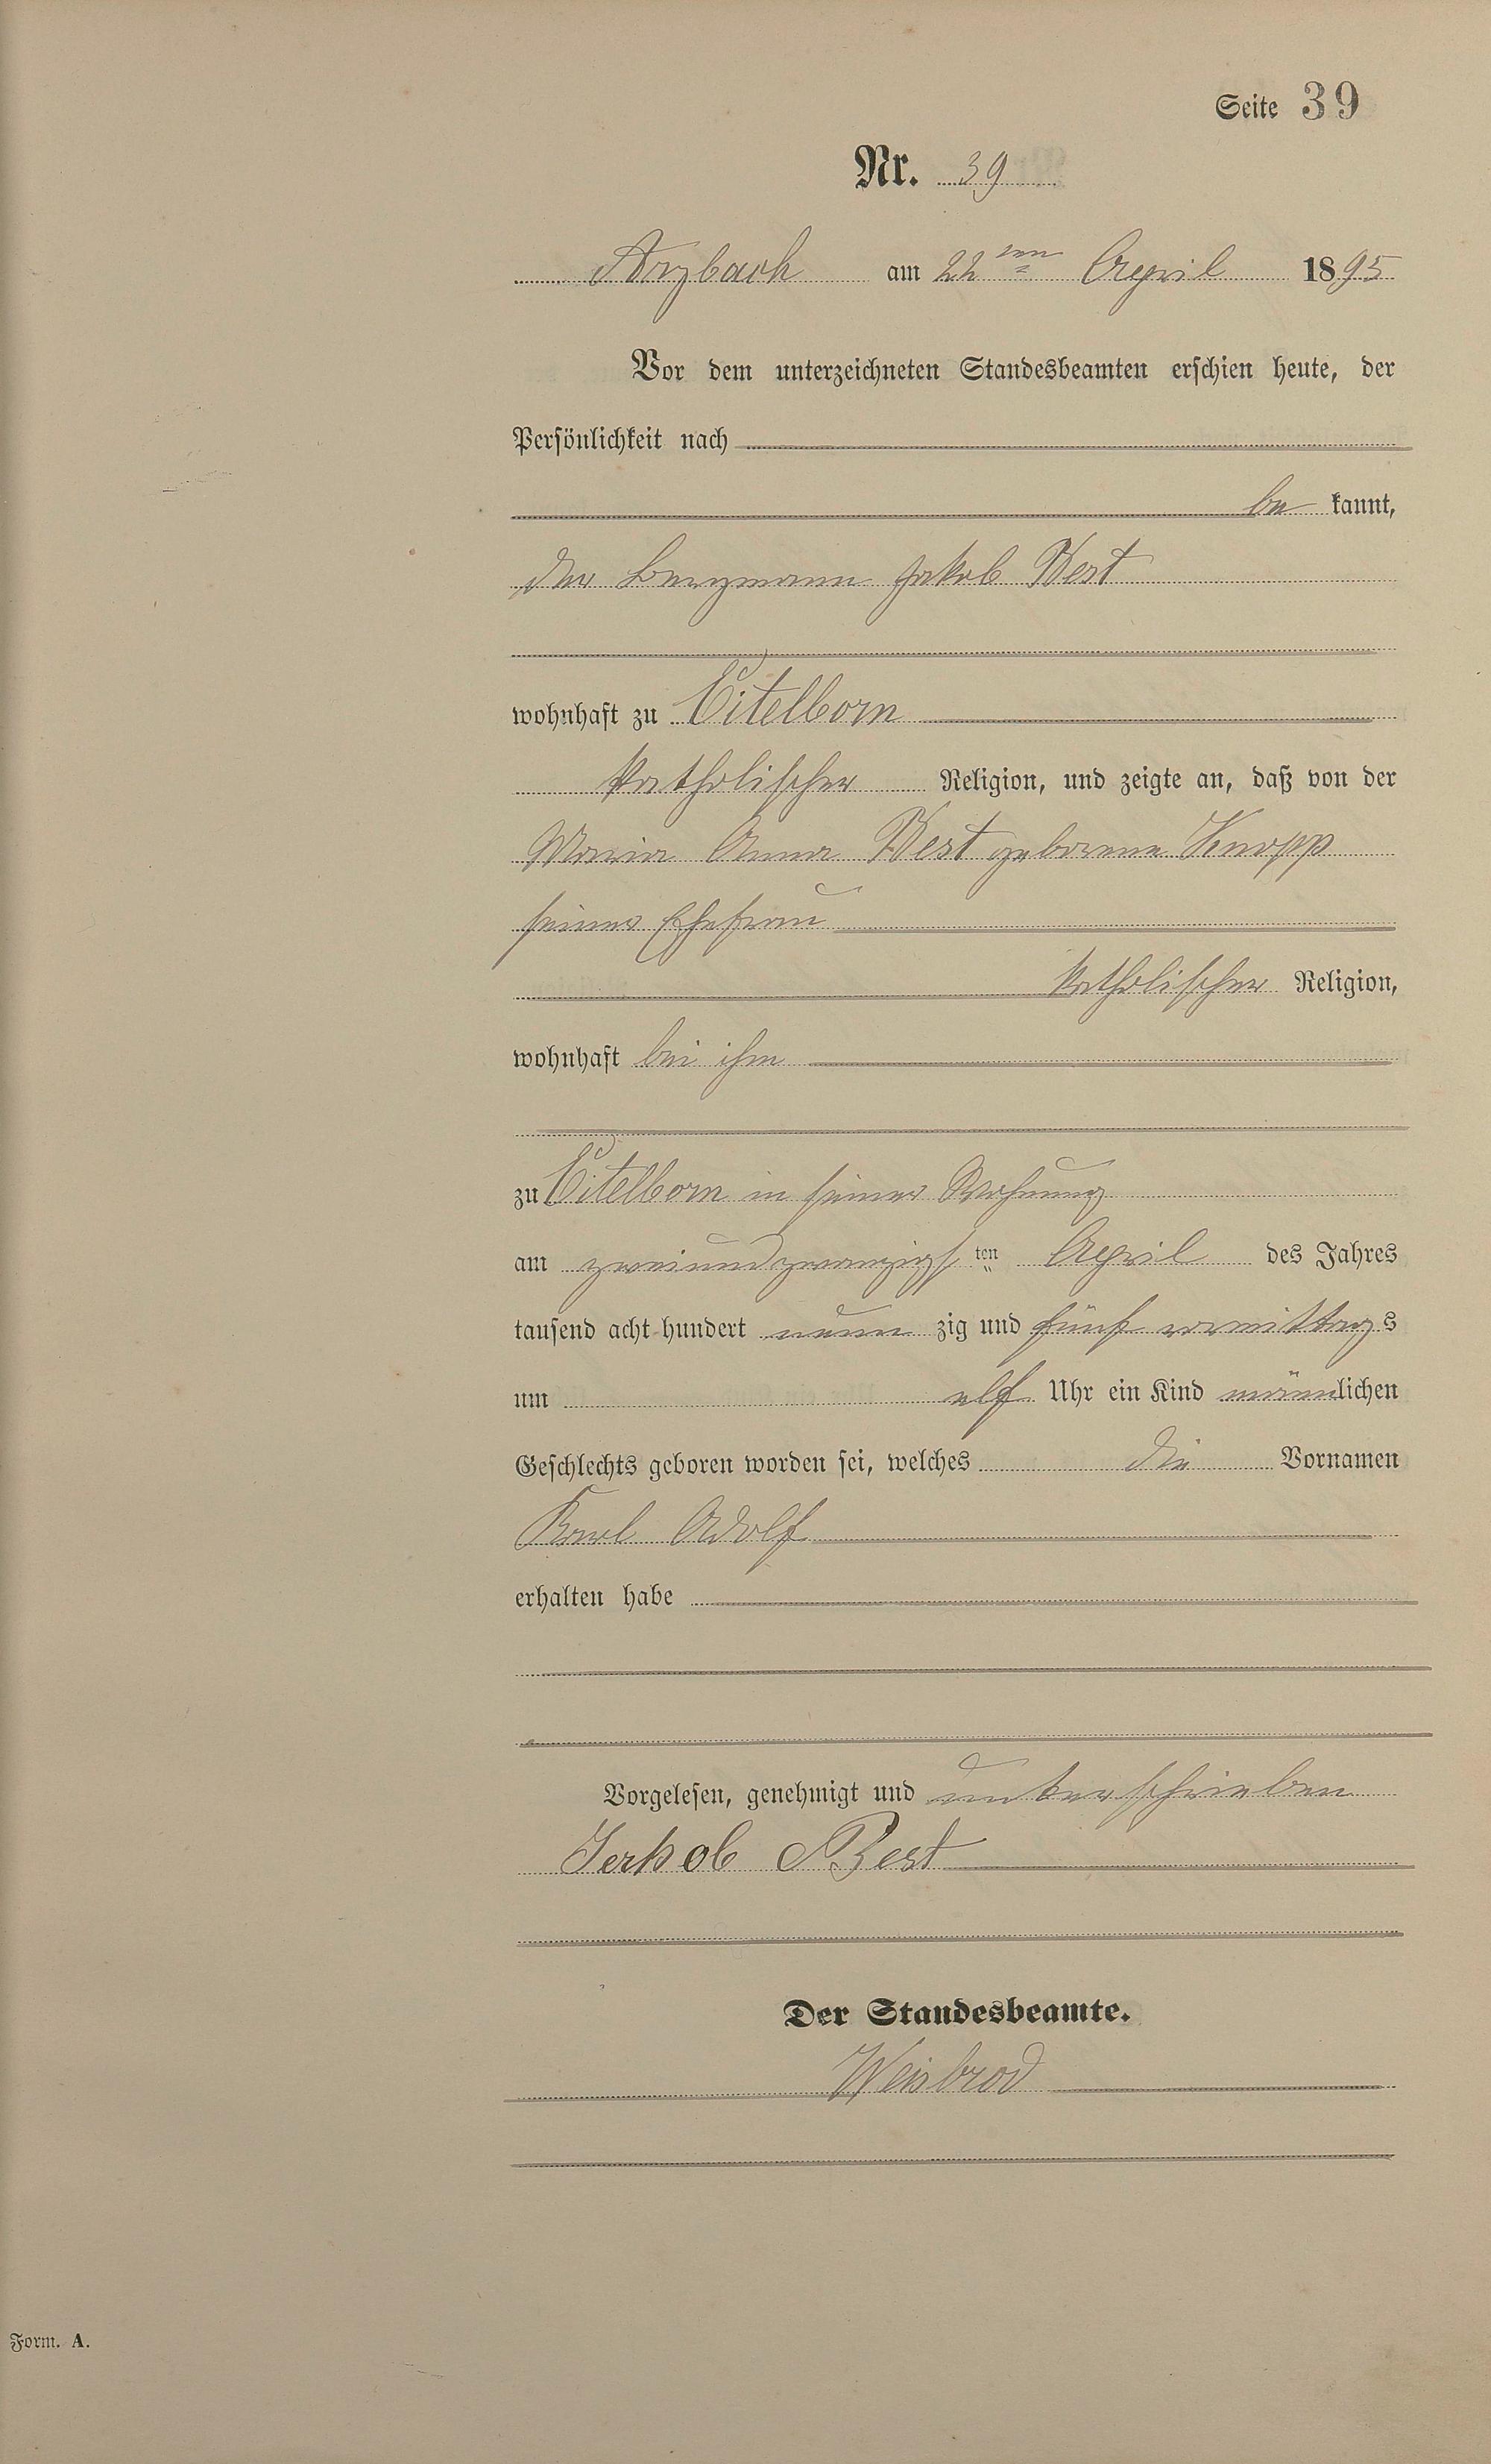 Seite 39
Nr. 39
Arzbach am 22ten April 1895
Vor dem unterzeichneten Standesbeamten erschien heute, der
Persönlichkeit nach
be kannt,
der Bergmann Jakob Best
wohnhaft zu Eitelborn
katholischer Religion, und zeigte an, daß von der
Maria Anna Best geborene Knopp
seiner Ehefrau
katholischer Religion,
wohnhaft bei ihm
zu Eitelborn in seiner Wohnung
am zweiundzwanzigsten April des Jahres
tausend acht hundert neun zig und fünf vormittags
um elf Uhr ein Kind männlichen
Geschlechts geboren worden sei, welches die Vornamen
Karl Adolf
erhalten habe
Vorgelesen, genehmigt und unterschrieben
Jakob Best
Der Standesbeamte.
Weisbrod
Form. A.